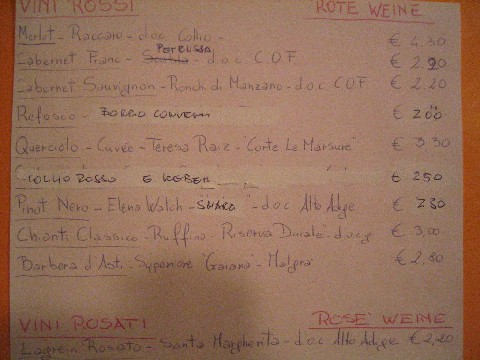 VINI ROSSI ROTE WEINE
Merlot - Raccaro - d.o.c. Collio - € 4.30
Cabernet Franc - PETRUSSA d.o.c. C.O.F. € 2.90
Cabernet Sauvignon - Ronchi di Manzano - d.o.c. C.O.F € 2.20
Refosco - € 200
Querciolo - Cuvée - Teresa Raiz - "Corte Le Marsure" € 3.30
COLLIO ROSSO E KEBER € 250
Pinot Nero - Elena Walch - d.o.c. Alto Adige € 230
Chianti Classico - Ruffino - "Riserva Ducale" d.o.c.g € 3,00
Barbera d'Asti - Superiore "Gaiana" - Malgrà € 2,80
VINI ROSATI ROSE' WEINE
Lagrein Rosato - Santa Margherita - d.o.c Alto Adige € 2,20